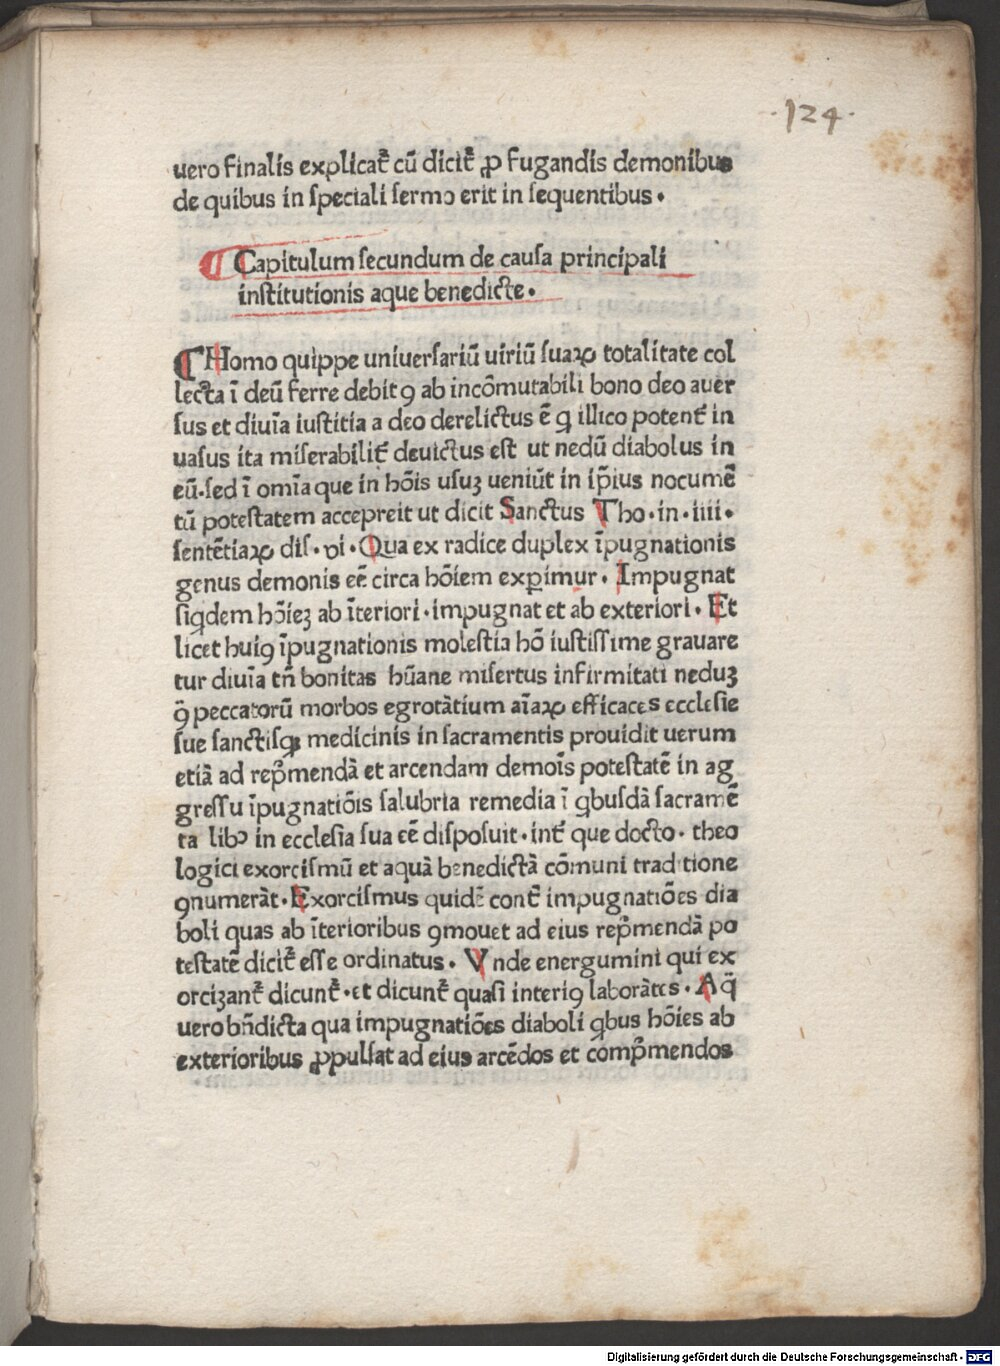 ·124·
uero finalis explicat᷑ cū dicit᷑ ꝓ fugandis demonibus
de quibus in speciali sermo erit in sequentibus.
¶ Capitulum secundum de causa principali
institutionis aque benedicte.
¶ Homo quippe uniuersariū uiriū suaꝝ totalitate col
lecta ī deū ferre debitꝯ ab incōmutabili bono deo auer
sus et diuīa iustitia a deo derelictus ē ꝗ illico potent᷑ in
uasus ita miserabilit᷑ deuictus est ut nedū diabolus in
eū·sed ī omīa que in hōis usuꝫ ueniūt in ip̄ius nocumē
tū potestatem accepreit ut dicit Sanctus Tho·in·iiii·
sentētiaꝝ dis·vi·Qua ex radice duplex īpugnationis
genus demonis eē circa hōiem exꝑimur. Impugnat
siꝗdem hōieꝫ ab īteriori·impugnat et ab exteriori. Et
licet huiꝯ īpugnationis molestia hō iustissime grauare
tur diuīa tn̄ bonitas hūane misertus infirmitati neduꝫ
ꝯ̄ peccatorū morbos egrotātium aīaꝝ efficaces ecclesie
sue sanctisꝗ medicinis in sacramentis prouidit uerum
etiā ad rep̄mendā et arcendam demoīs potestatē in ag
gressu īpugnatiōis salubria remedia ī ꝗbusdā sacramē
talibꝰ in ecclesia sua eē disposuit·int᷑ que docto· theo
logici exorcismū et aquā benedictā cōmuni traditione
ꝯnumerāt·Exorcismus quidē cont᷑ impugnatiōes dia
boli quas ab īterioribus ꝯmouet ad eius rep̄mendā po
testatē dicit᷑ esse ordinatus. Vnde energumini qui ex
orcizant᷑ dicunt᷑·et dicunt᷑ quasi interiꝯ laborātes. Aq̄
uero bn̄dicta qua impugnatiōes diaboli ꝗbus hōies ab
exterioribus ꝓpulsat ad eius arcēdos et comp̄mendos
Digitalisierung gefördert durch die Deutsche Forschungsgemeinschaft - DFG